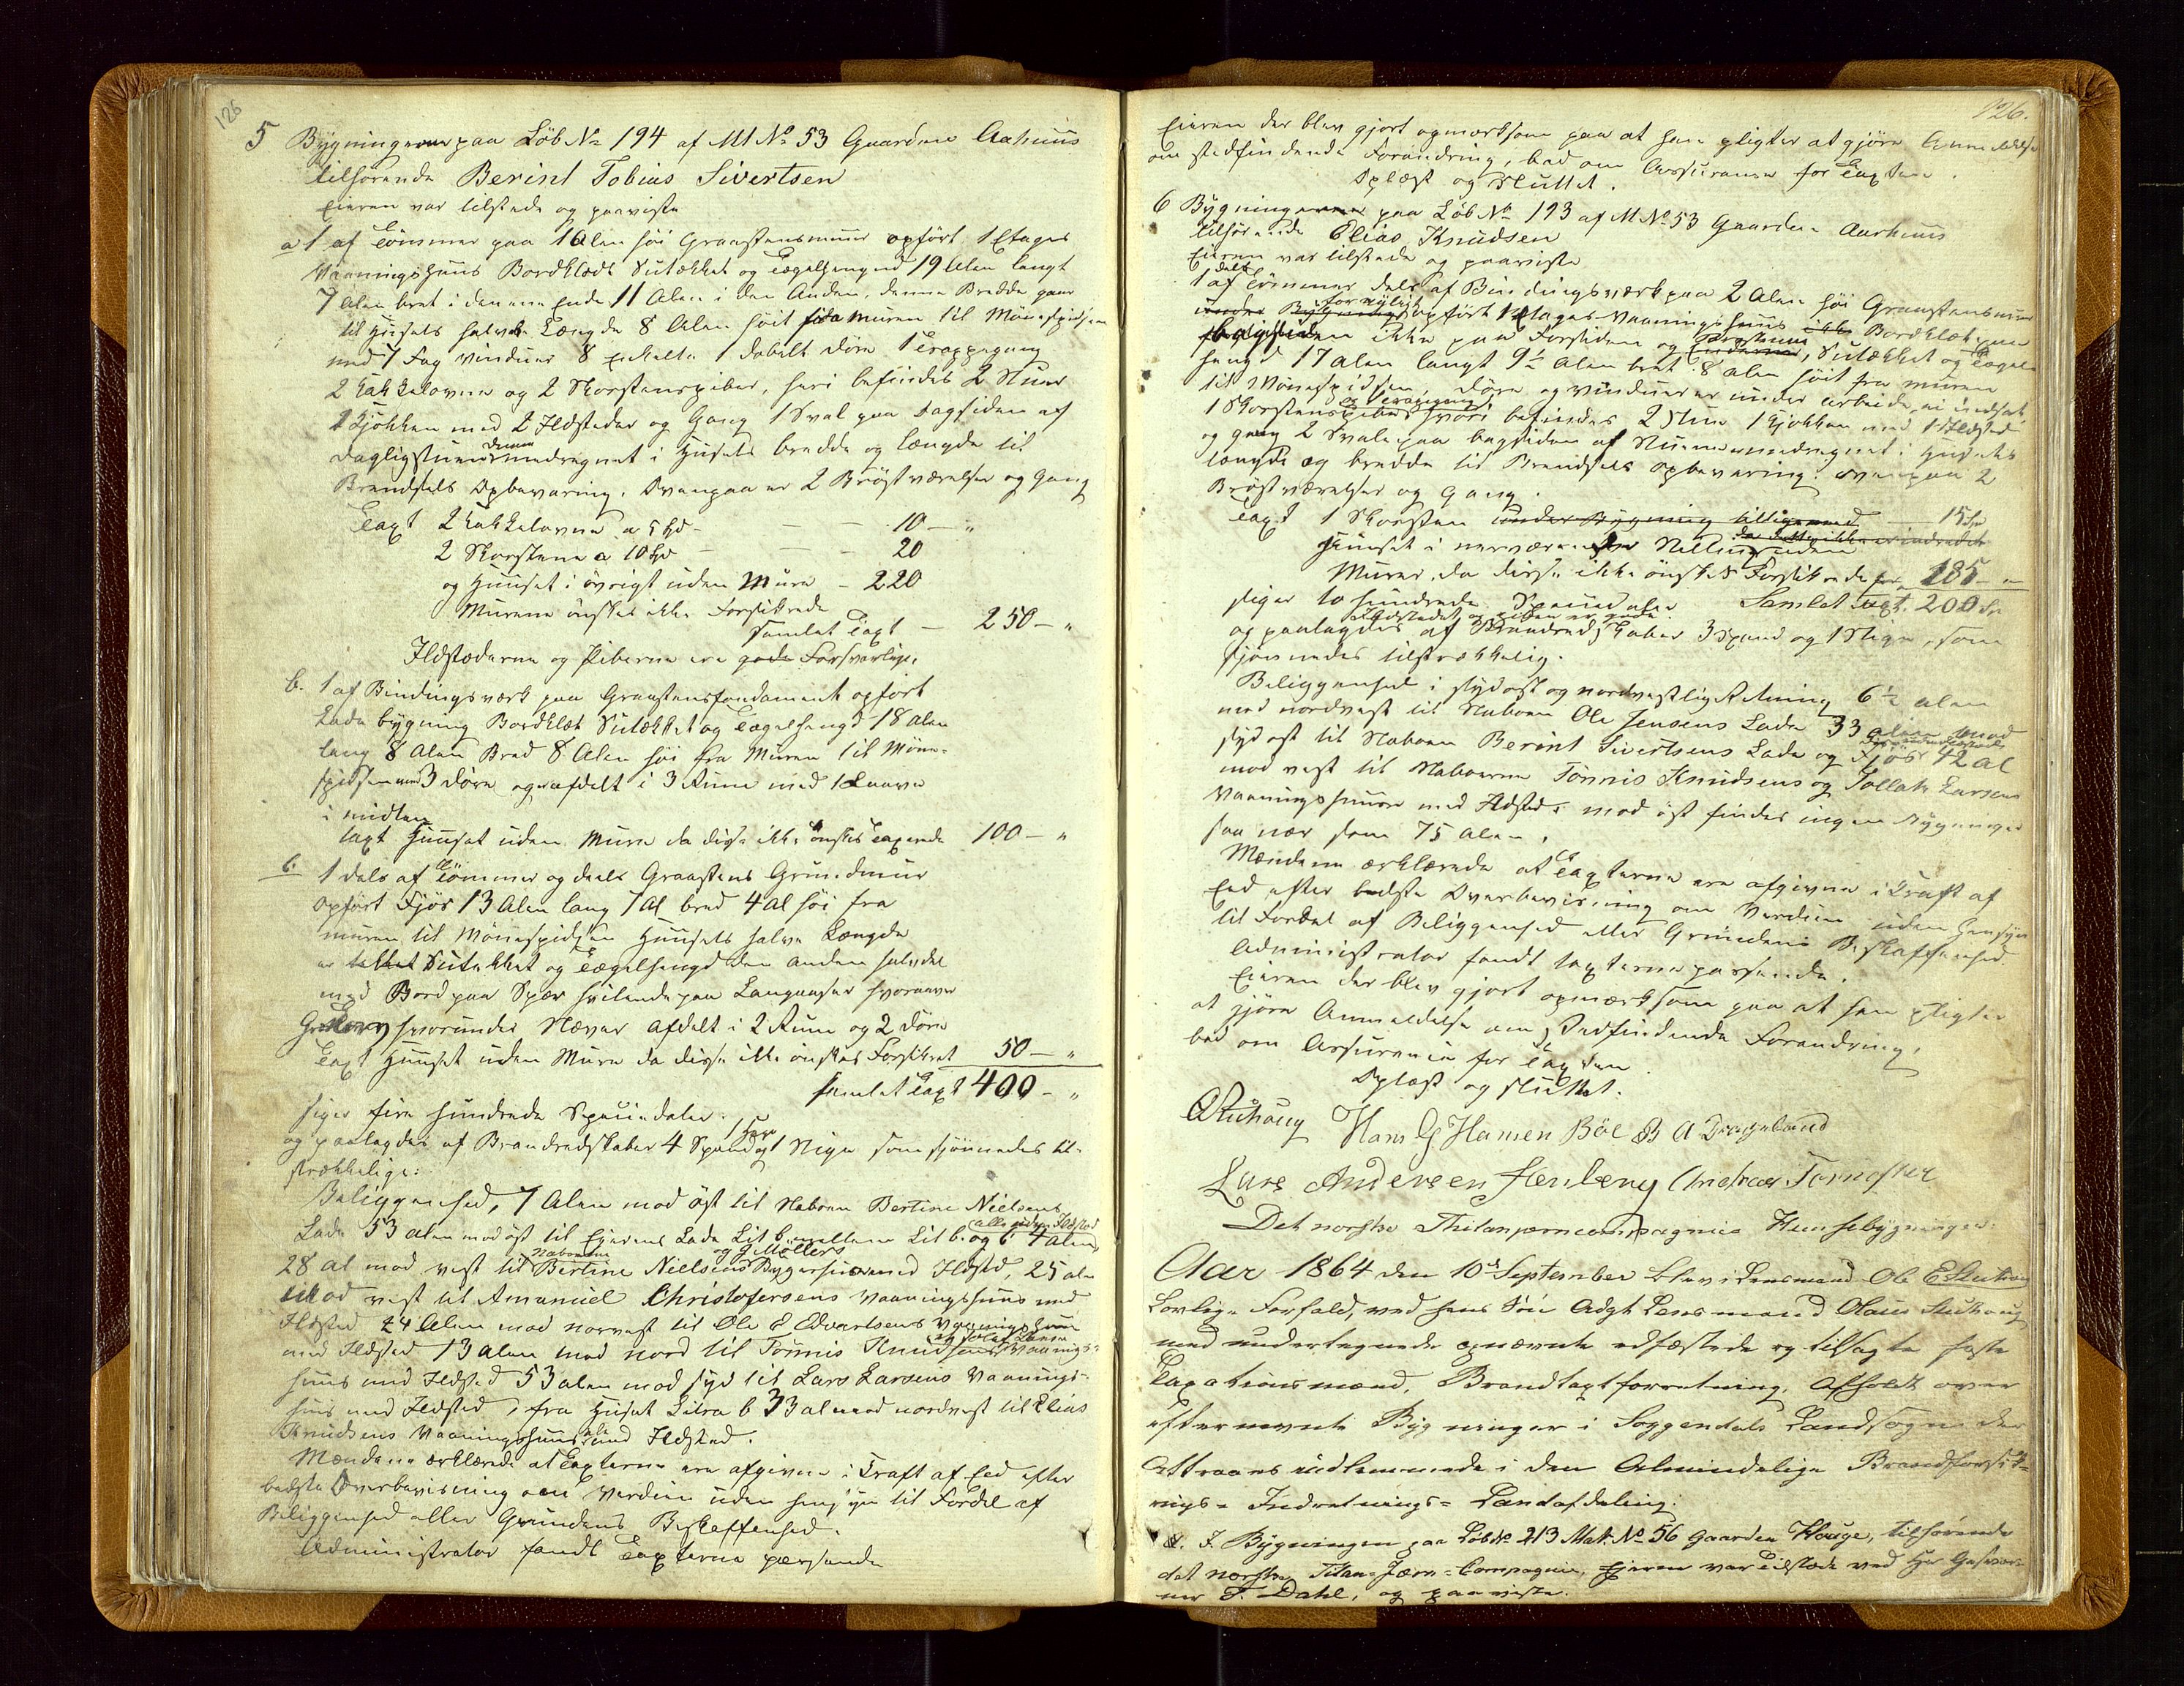 126
5 Bygningerne paa Løb No 194 af Mt No 53 Gaarden Aahuus
tilhørende Berint Tobias Sivertsen
Eieren var tilstede og paaviste
a 1 af Tømmer paa 1 Alen høi Graastensmuur opført 1 Etages
Vaaningshuus Bordklædt Sutækket og Tægelhængd 19 Alen langt
7 Alen bret i den ene Ende 11 Alen i den Anden, denne Bredde gaar
til Husets halve Længde 8 Alen høit fra Muren til Mønespidsen
med 7 Fag Vinduer 8 enkelte 1 dobelt Døre 1 Trappegang
2 Kakkelovne og 2 Skorstenspiber, heri befindes 2 Stuer
2 Kjøkken med 2 Ildsteder og Gang 1 Sval paa Bagsiden af
Dagligstuen denne medregnet i Husets bredde og længde til
Brendsels Opbevaring. Ovenpaa er 2 Brøstværelser og Gang
Taxt 2 Kakkelovne a 5 Spd — 10 — "
2 Skorstene a 10 Spd — 20
og Huuset i øvrigt uden Mure — 220
Murene ønskes ikke Forsikrede
samlet Taxt — 250 — "
Ildstæderne og Piberne ere gode Forsvarlige.
b. 1 af Bindingsværk paa Graastensfondament opført
Lade bygning Bordklæt Sutækket og Tægelhengd 18 Alen
lang 8 Alen Bred 8 Alen høi fra Muren til Møne-
spidsen med 3 Døre og afdelt i 3 Rum med 1 Laave
i midten
taxt Huuset uden Mure da disse ikke ønskes Taxerede 100 — "
c. 1 dels af Tømmer og deels Graastens Grundmuur
opført Fjøs 13 Alen lang 7 Al bred 4 Al høi fra
muren til Mønespidsen Huusets halve Længde
er Sutækket og Tægelhengd den anden halvdel
med Bord paa Spær hvilende paa Langaaser hvorover
hvorunder Næver afdelt i 2 Rum og 2 Døre
Taxt Huuset uden Mure da disse ikke ønskes Forsikret 50 — "
samlet Taxt 400 — "
siger fire hundrede Speciedaler.
og paalagdes af Brandredskaber 4 Spand 1 Hage og 1 Stige som skjønnedes til-
strækkelige:
Beliggenhed, 7 Alen mod øst til Naboen Bertine Nielsens
Lade 53 alen mod øst til Eierens Lade Lit b. mellem Lit b. og c 4 alen (alle uden Ildsted)
28 al mod vest til Naboerne Bertine Nielsens og G Møllers Bygerhuus med Ildsted, 25 alen
mod vest til Amanuel Christofersens Vaaningshuus med
Ildsted 24 Alen mod norvest til Ole E Edvartsens Vaaningshuus
med Ildsted 13 Alen mod nord til Tønnis Knudsens og Tolak Larsen Vaanings-
huus med Ildsted 53 alen mod syd til Lars Larsens Vaanings-
huus med Ildsted, fra Huset Litra b 33 al mod nordvest til Elias
Knudsens Vaaningshuus med Ildsted.
Mændene erklærede at Taxterne ere afgivne i Kraft af Eed efter
bedste Overbeviisning om Verdien uden hensyn til Fordel af
Beliggenhed eller Grundens Beskaffenhed.
Administrator fandt Taxterne passende
126.
Eieren der blev gjort opmærksom paa at han pligter at gjøre Anmeldelse
om stedfindende Forandring, bad om Assurance for Taxten.
Oplæst og Sluttet.
6 Bygningerne paa Løb No 193 af M No 53 Gaarden Aarhuus
tilhørende Elias Knudsen
Eieren var tilstede og paaviste
1 dels af Tømmer dels af Bindingsværk paa 2 Alen høi Graastensmuur
under Bygning fornyligt opført 1 Etages Vaaningshuus Bordklæt paa
Bagsiden ikke paa Forsiden og Enderne, Sutækket og Tægel-
hengd 17 Alen langt 9½ Alen bret 8 Alen høit fra muren
til Mønespidsen, Døre og Vinduer er under arbeide, ei indsat
1 Skorstenspibe og Trapegang hvori befindes 2 Stuer 1 Kjøkken med 1 Ildsted
og gang 2 Svale paa bagsiden af Stuerne medregnet i Husets
længde og bredde til Brendsels Opbevaring. Ovenpaa 2
Brøstværelser og Gang.
Taxt 1 Skorsten under Bygning tilligemed — 15 Spd
Huuset i nærværende Stilling uden
Murer, da disse ikke ønskes Forsikrede for 185 — "
siger to hundrede Speciedaler Samlet Taxt. 200 Sp
Ildstedet og Piben er gode.
og paalagdes af Brandredskaber 3 Spand og 1 Stige, som
skjønnedes tilstrækkelig.
Beliggenhed i sydøst og nordvestlig Retning 6½ alen
mod nordvest til Naboen Ole Jensens Lade 33 alen mod
sydøst til Naboen Berint Sivertsens Lade og Fjøs 42 al
mod vest til Naboerne Tønnis Knudsens og Tollak Larsens
Vaaningshuse med Ildsted, mod øst findes ingen Bygninger
saa nær som 75 Alen.
Mændene erklærede at Taxterne ere afgivne i Kraft af
Eed efter bedste Overbevisning om Verdien uden Hensyn
til Fordel af Beliggenhed eller Grundens Beskaffenhed.
Administrator fandt Taxterne passende.
Eieren der blev gjort opmærksom paa at han pligter
at gjøre Anmeldelse om Stedfindende Forandring,
bad om Assurance for Taxten.
Oplæst og sluttet.
OStuhaug Hans G Hansen Böe B A Drageland
Lars Andersen Stenberg Andreas
Det norske Thitanjerncompagnies Huusebygninger:
Aar 1864 den 10de September blev i Lensmand Ole E Stuhaug
Lovlige Forfald, ved hans Søn Adgt Lensmand Olaus Stuhaug
med undertegnede opnævnte edfæstede og tilsagte faste
Taxationsmænd, Brandtaxtforretning, Afholdt over
efternevnte Bygninger i Soggendals Landsogn der
attraaes indlemmede i den Almindelige Brandforsik-
rings-Indretnings-Landafdeling:
1. Bygningen paa Løb No 213 Mat. No 56 Gaarden Hauge, tilhørende
det norske Titan-Jern-Compagnie, Eieren var tilstede ved Hr
T. Dahl, og paaviste.